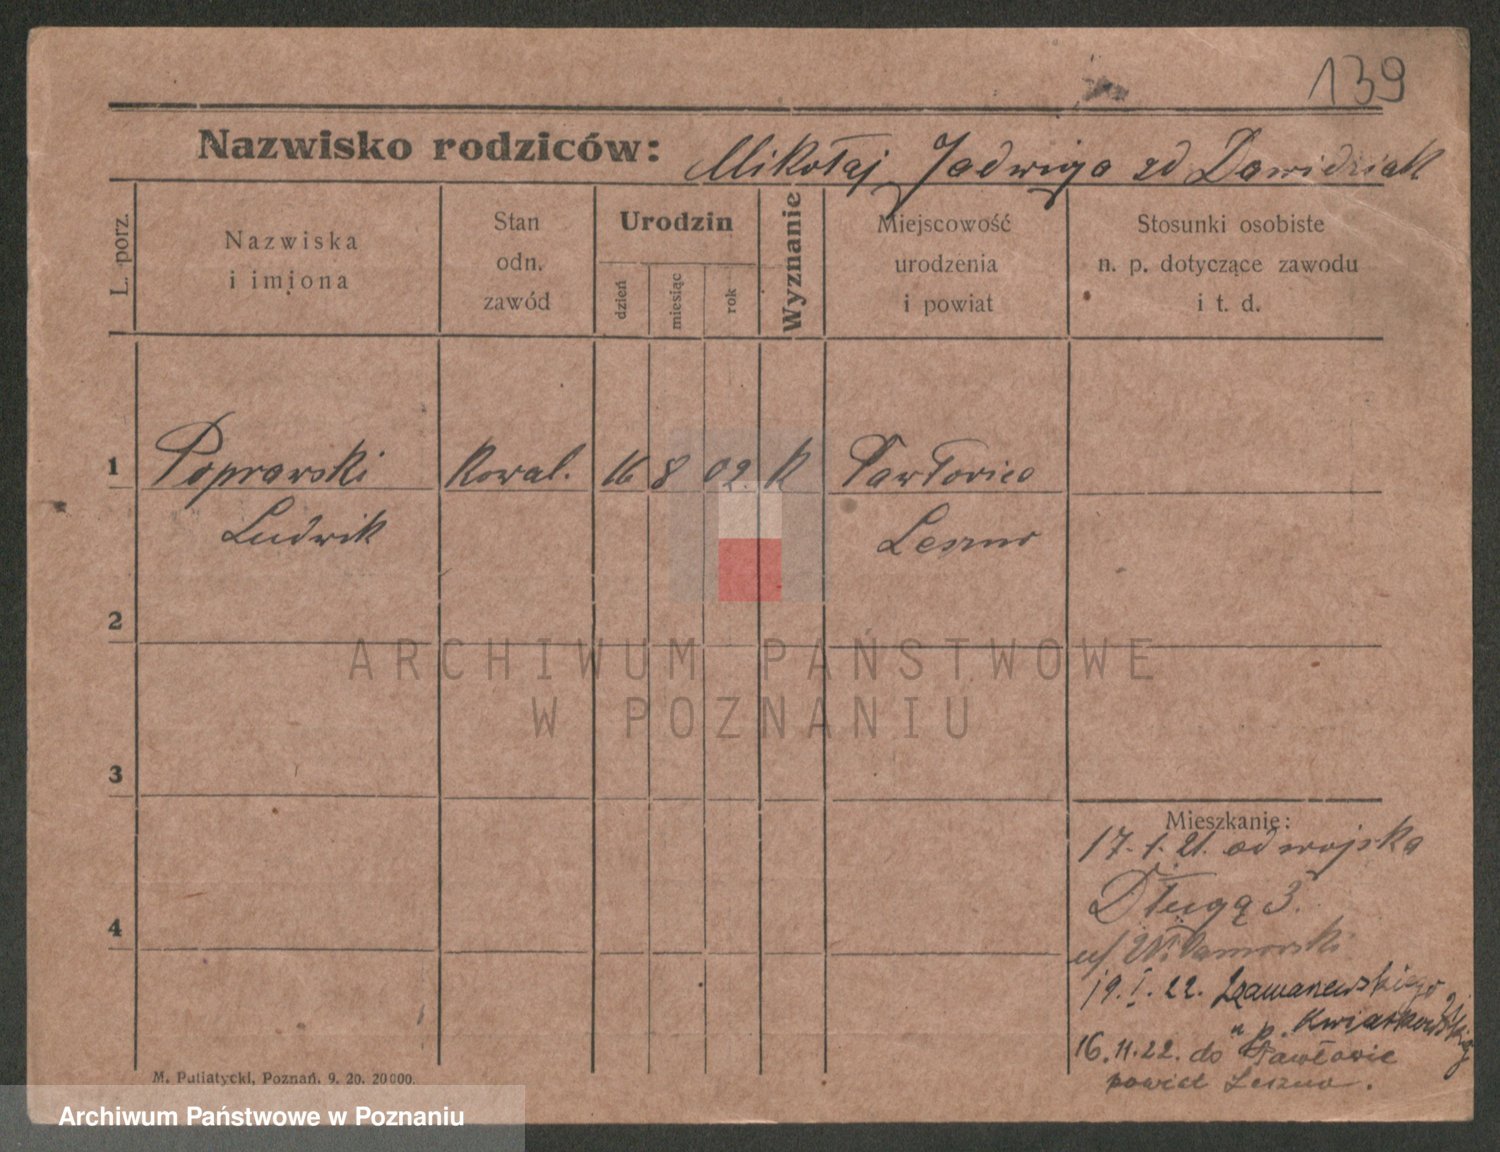 139
Nazwisko rodziców: Mikołaj Jadwiga zd Dawidziak
L. porz.
Nazwiska
i imiona
Stan
odn.
zawód
Urodzin
dzień
miesiąc
rok
Wyznanie
Miejscowość
urodzenia
i powiat
Stosunki osobiste
n. p. dotyczące zawodu
i t. d.
1 Poprawski Kowal. 16 8 02. k Pawłowice
Ludwik Leszno
2
3
4
ARCHIWUM PAŃSTWOWE
W POZNANIU
Mieszkanie:
17.1.21. od wojska
Długą 3.
u/
19.I.22. 21
u p. Kwiatkowskiej
16.11.22. do Pawłowic
powiat Leszno.
M. Putiatycki, Poznań. 9. 20. 20000.
Archiwum Państwowe w Poznaniu